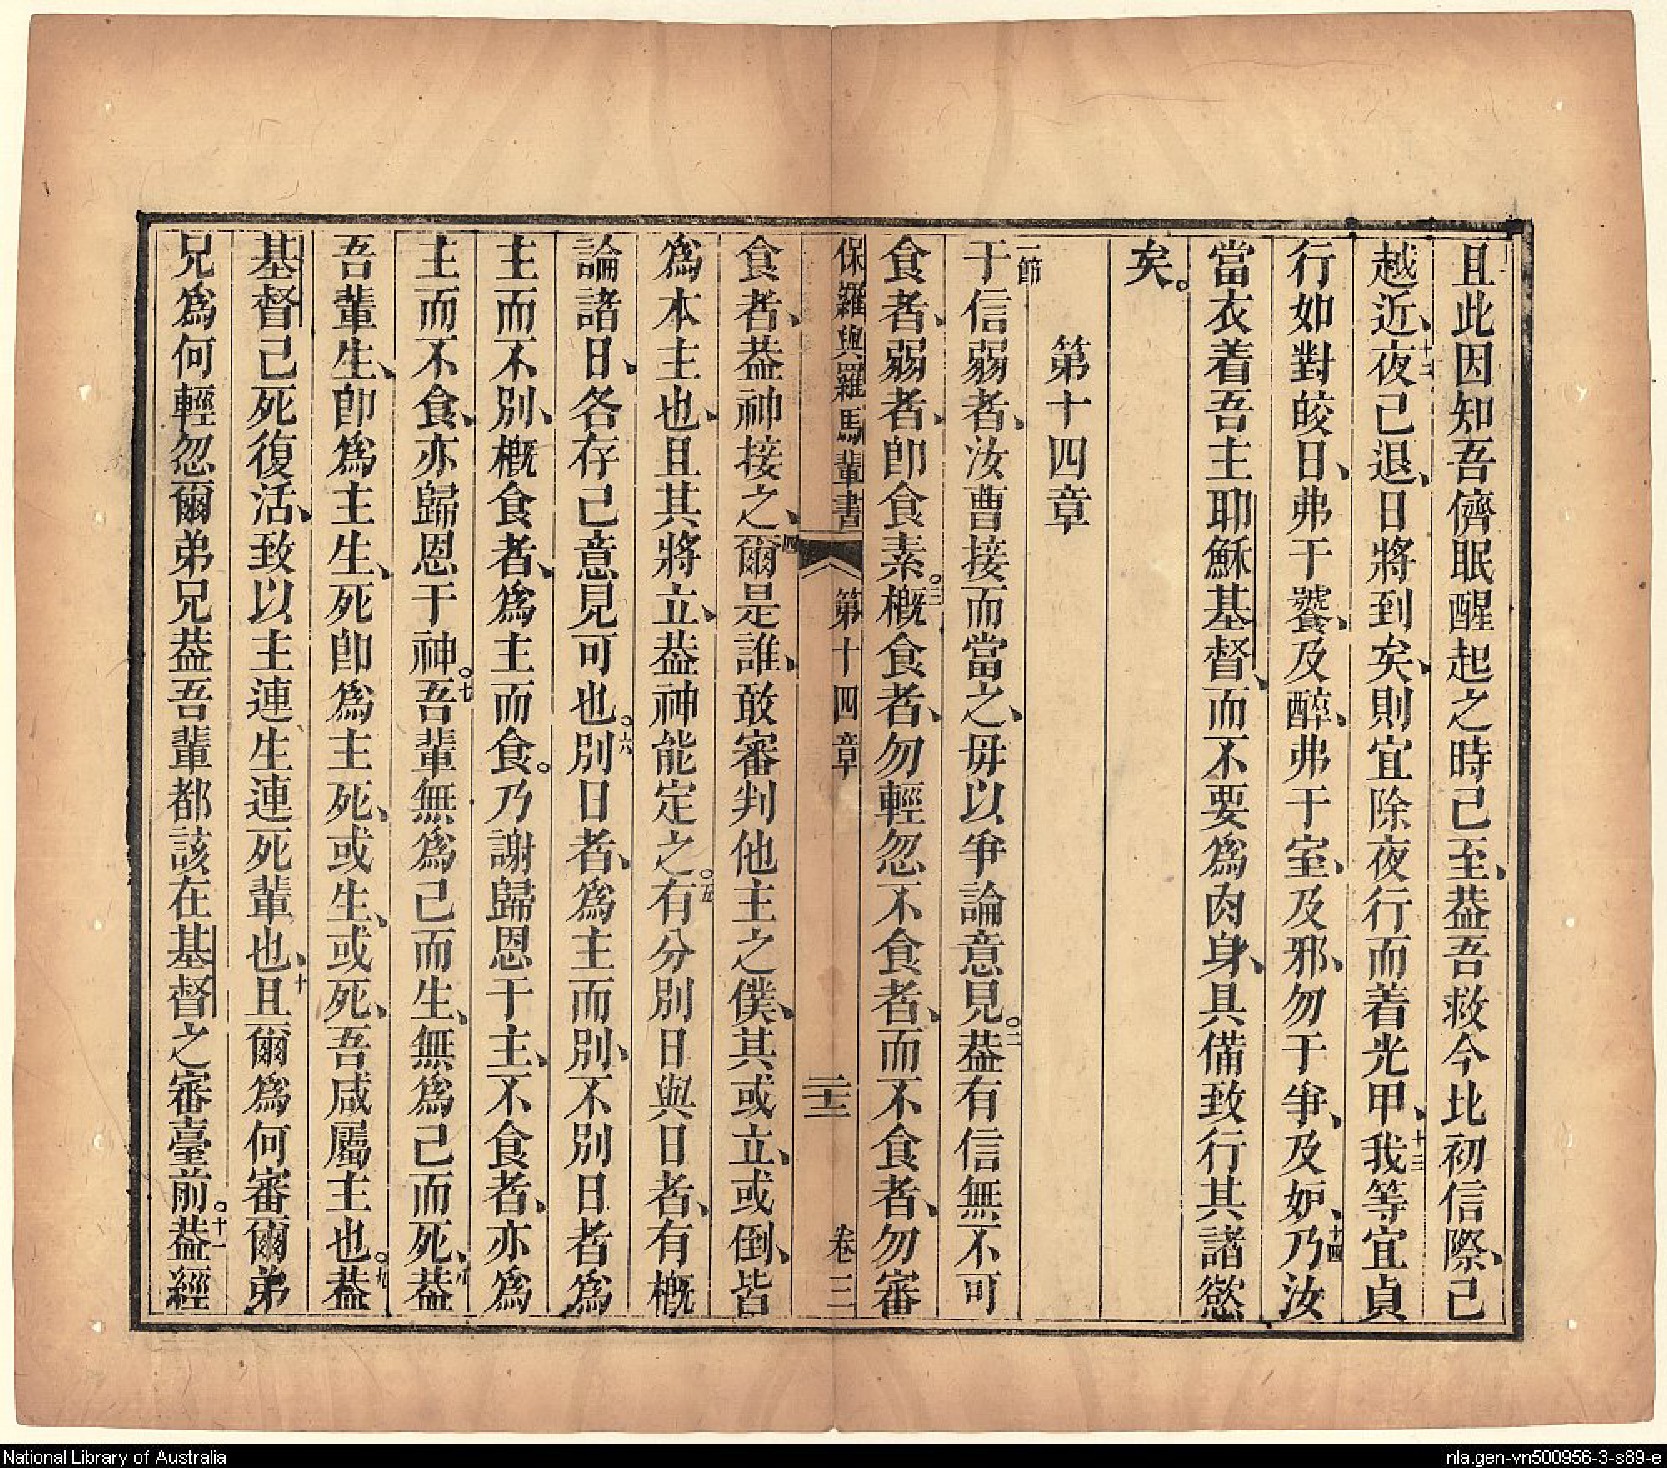 且此因知吾儕眠醒起之時己至、葢吾救今比初信際、己
越近、十二夜己退、日將到矣、則宜除夜行而着光甲、十三我等宜貞
行如對皎日、弗于饕、及醉、弗于室、及邪、勿于爭、及妒、十四乃汝
當衣着吾主耶穌基督、而不要為肉身、具備致行其諸慾
矣。
第十四章
一節于信弱者、汝曹接而當之、毋以爭論意見。二葢有信無不可
食者、弱者、卽食素。三概食者、勿輕忽不食者、而不食者、勿審
保羅與羅馬輩書 第十四章 二十二 卷三
食者、葢神接之、四爾是誰、敢審判他主之僕、其或立、或倒、皆
為本主也、且其將立、葢神能定之。五有分別日與日者、有概
論諸日、各存己意見可也。六別日者、為主而別、不別日者為
主而不別、概食者、為主而食。乃謝歸恩于主、不食者、亦為
主而不食、亦歸恩于神。七吾輩無為己而生、無為己而死、八葢
吾輩生、卽為主生、死卽為主死、或生、或死、吾咸屬主也。九葢
基督己死復活、致以主連生連死輩也、十且爾為何審爾弟
兄為何輕忽爾弟兄葢吾輩都該在基督之審臺前。十一葢經
National Library of Australia
nla.gen-vn500956-3-s89-e